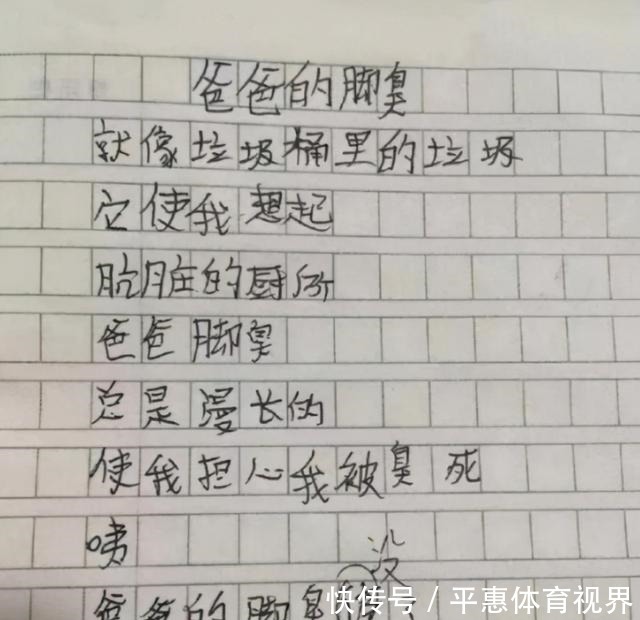 爸爸的脚臭
就像垃圾桶里的垃圾
它使我想起
肮脏的厨所
爸爸脚臭
总是漫长的
使我担心我被臭死
咦
没
爸爸的脚臭
快传号 / 平惠体育视界